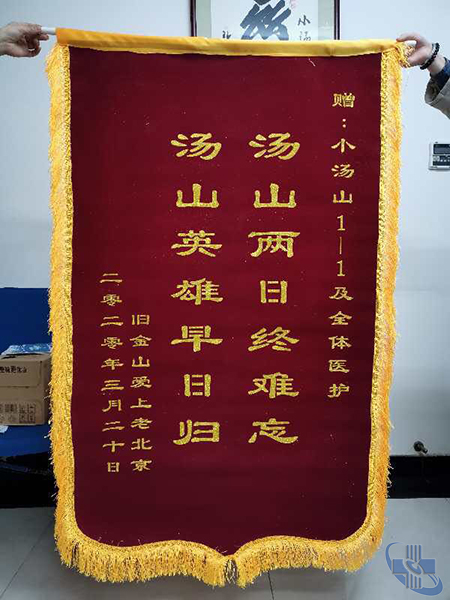 赠：小汤山1—1及全体医护
汤山两日终难忘
汤山英雄早日归
旧金山爱上老北京
二零二零年三月二十日
小汤